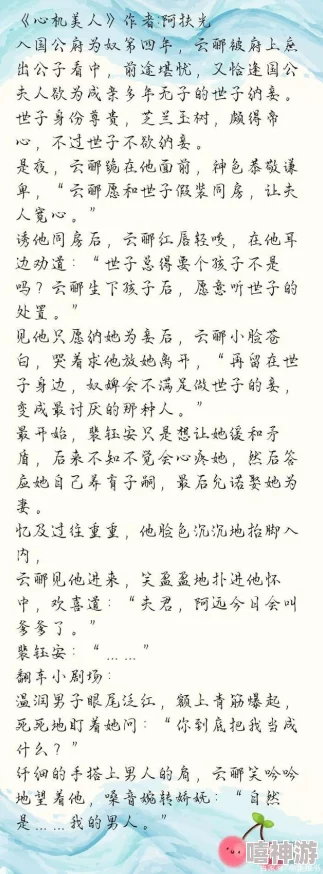 《心机美人》作者:阿扶光
入国公府为奴第四年，云郦被府上庶
出公子看中，前途堪忧，又恰逢国公
夫人欲为成亲多年无子的世子纳妾。
世子身份尊贵，芝兰玉树，颇得帝
心，不过世子不欲纳妾。
是夜，云郦跪在他面前，神色恭敬谦
卑，“云郦愿和世子假装同房，让夫
人宽心。”
诱他同房后，云郦红唇轻咬，在他耳
边劝道：“世子总得要个孩子不是
吗？云郦生下孩子后，愿意听世子的
处置。”
见他只愿纳她为妾后，云郦小脸苍
白，哭着求他放她离开，“再留在世
子身边，奴婢会不满足做世子的妾，
变成最讨厌的那种人。”
最开始，裴钰安只是想让她缓和矛
盾，后来不知不觉会心疼她，然后答
应她自己养育子嗣，最后允诺娶她为
妻。
忆及过往重重，他脸色沉沉地抬脚入
内，
云郦见他进来，笑盈盈地扑进他怀
中，欢喜道：“夫君，阿远今日会叫
爹爹了。”
裴钰安：“……”
翻车小剧场：
温润男子眼尾泛红，额上青筋爆起，
死死地盯着她问：“你到底把我当成
什么？”
纤细的手搭上男人的肩，云郦笑吟吟
地望着他，嗓音婉转娇妩：“自然
是……我的男人。”
嘻神游